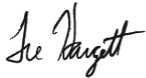 Tre Hargett